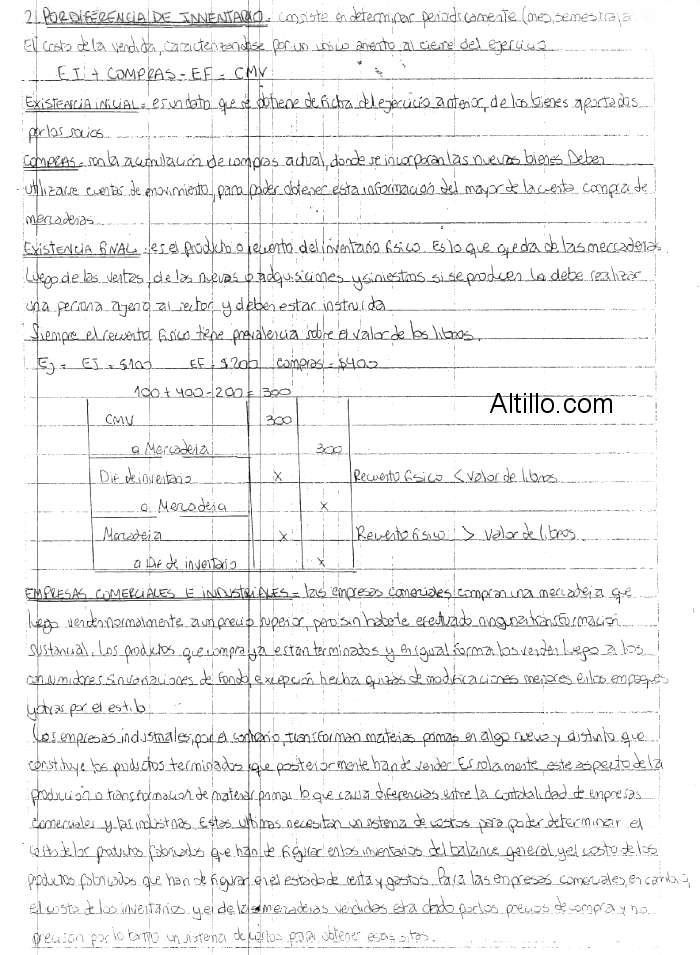 2. POR DIFERENCIA DE INVENTARIO = consiste en determinar periodicamente (mes, semestral, a
El costo de lo vendida, caracterizandose por un unico asiento al cierre del ejercicio
EI + COMPRAS - EF = CMV
EXISTENCIA INICIAL = es un dato que se obtiene de ficha del ejercicio anterior, de los bienes aportados
por los socios
COMPRAS = son la acumulación de compras actual, donde se incorporan las nuevas bienes. Deben
utilizarse cuentas de movimiento, para poder obtener esta información del mayor de la cuenta compra de
mercaderias
EXISTENCIA FINAL = es el producto o recuento del inventario fisico. Es lo que queda de las mercaderias
luego de las ventas, de las nuevas adquisiciones y siniestros si se producen. La debe realizar
una persona ajena al sector y deben estar instruida
Siempre el recuento fisico tiene prevalencia sobre el valor de los libros.
Ej = EI = $100 EF = $200 compras = $400
100 + 400 - 200 = 300
Altillo.com
CMV 300
a Mercaderia 300
Dif de inventario x Recuento fisico < Valor de libros
a Mercaderia x
Mercaderia x Recuento fisico > Valor de libros
a Dif de inventario x
EMPRESAS COMERCIALES E INDUSTRIALES = las empresas comerciales compran una mercaderia que
luego venden normalmente a un precio superior, pero sin haberle efectuado ninguna transformación
sustancial. Los productos que compra ya estan terminados y en igual forma los venden luego a los
consumidores sin variaciones de fondo, excepción hecha quizas de modificaciones menores en los empaques
y otras por el estilo
Las empresas industriales, por el contrario, transforman materias primas en algo nuevo y distinto que
constituye los productos terminados que posteriormente han de vender. Es solamente este aspecto de la
producción o transformacion de materias primas lo que causa diferencias entre la contabilidad de empresas
comerciales y las industrias. Estas ultimas necesitan un sistema de costos para poder determinar el
costo de los productos fabricados que han de figurar en los inventarios del balance general y el costo de los
productos fabricados que han de figurar en el estado de renta y gastos. Para las empresas comerciales, en cambio,
el costo de los inventarios y el de las mercaderias vendidas esta dado por los precios de compra y no
precisan por lo tanto un sistema de costos para obtener esas